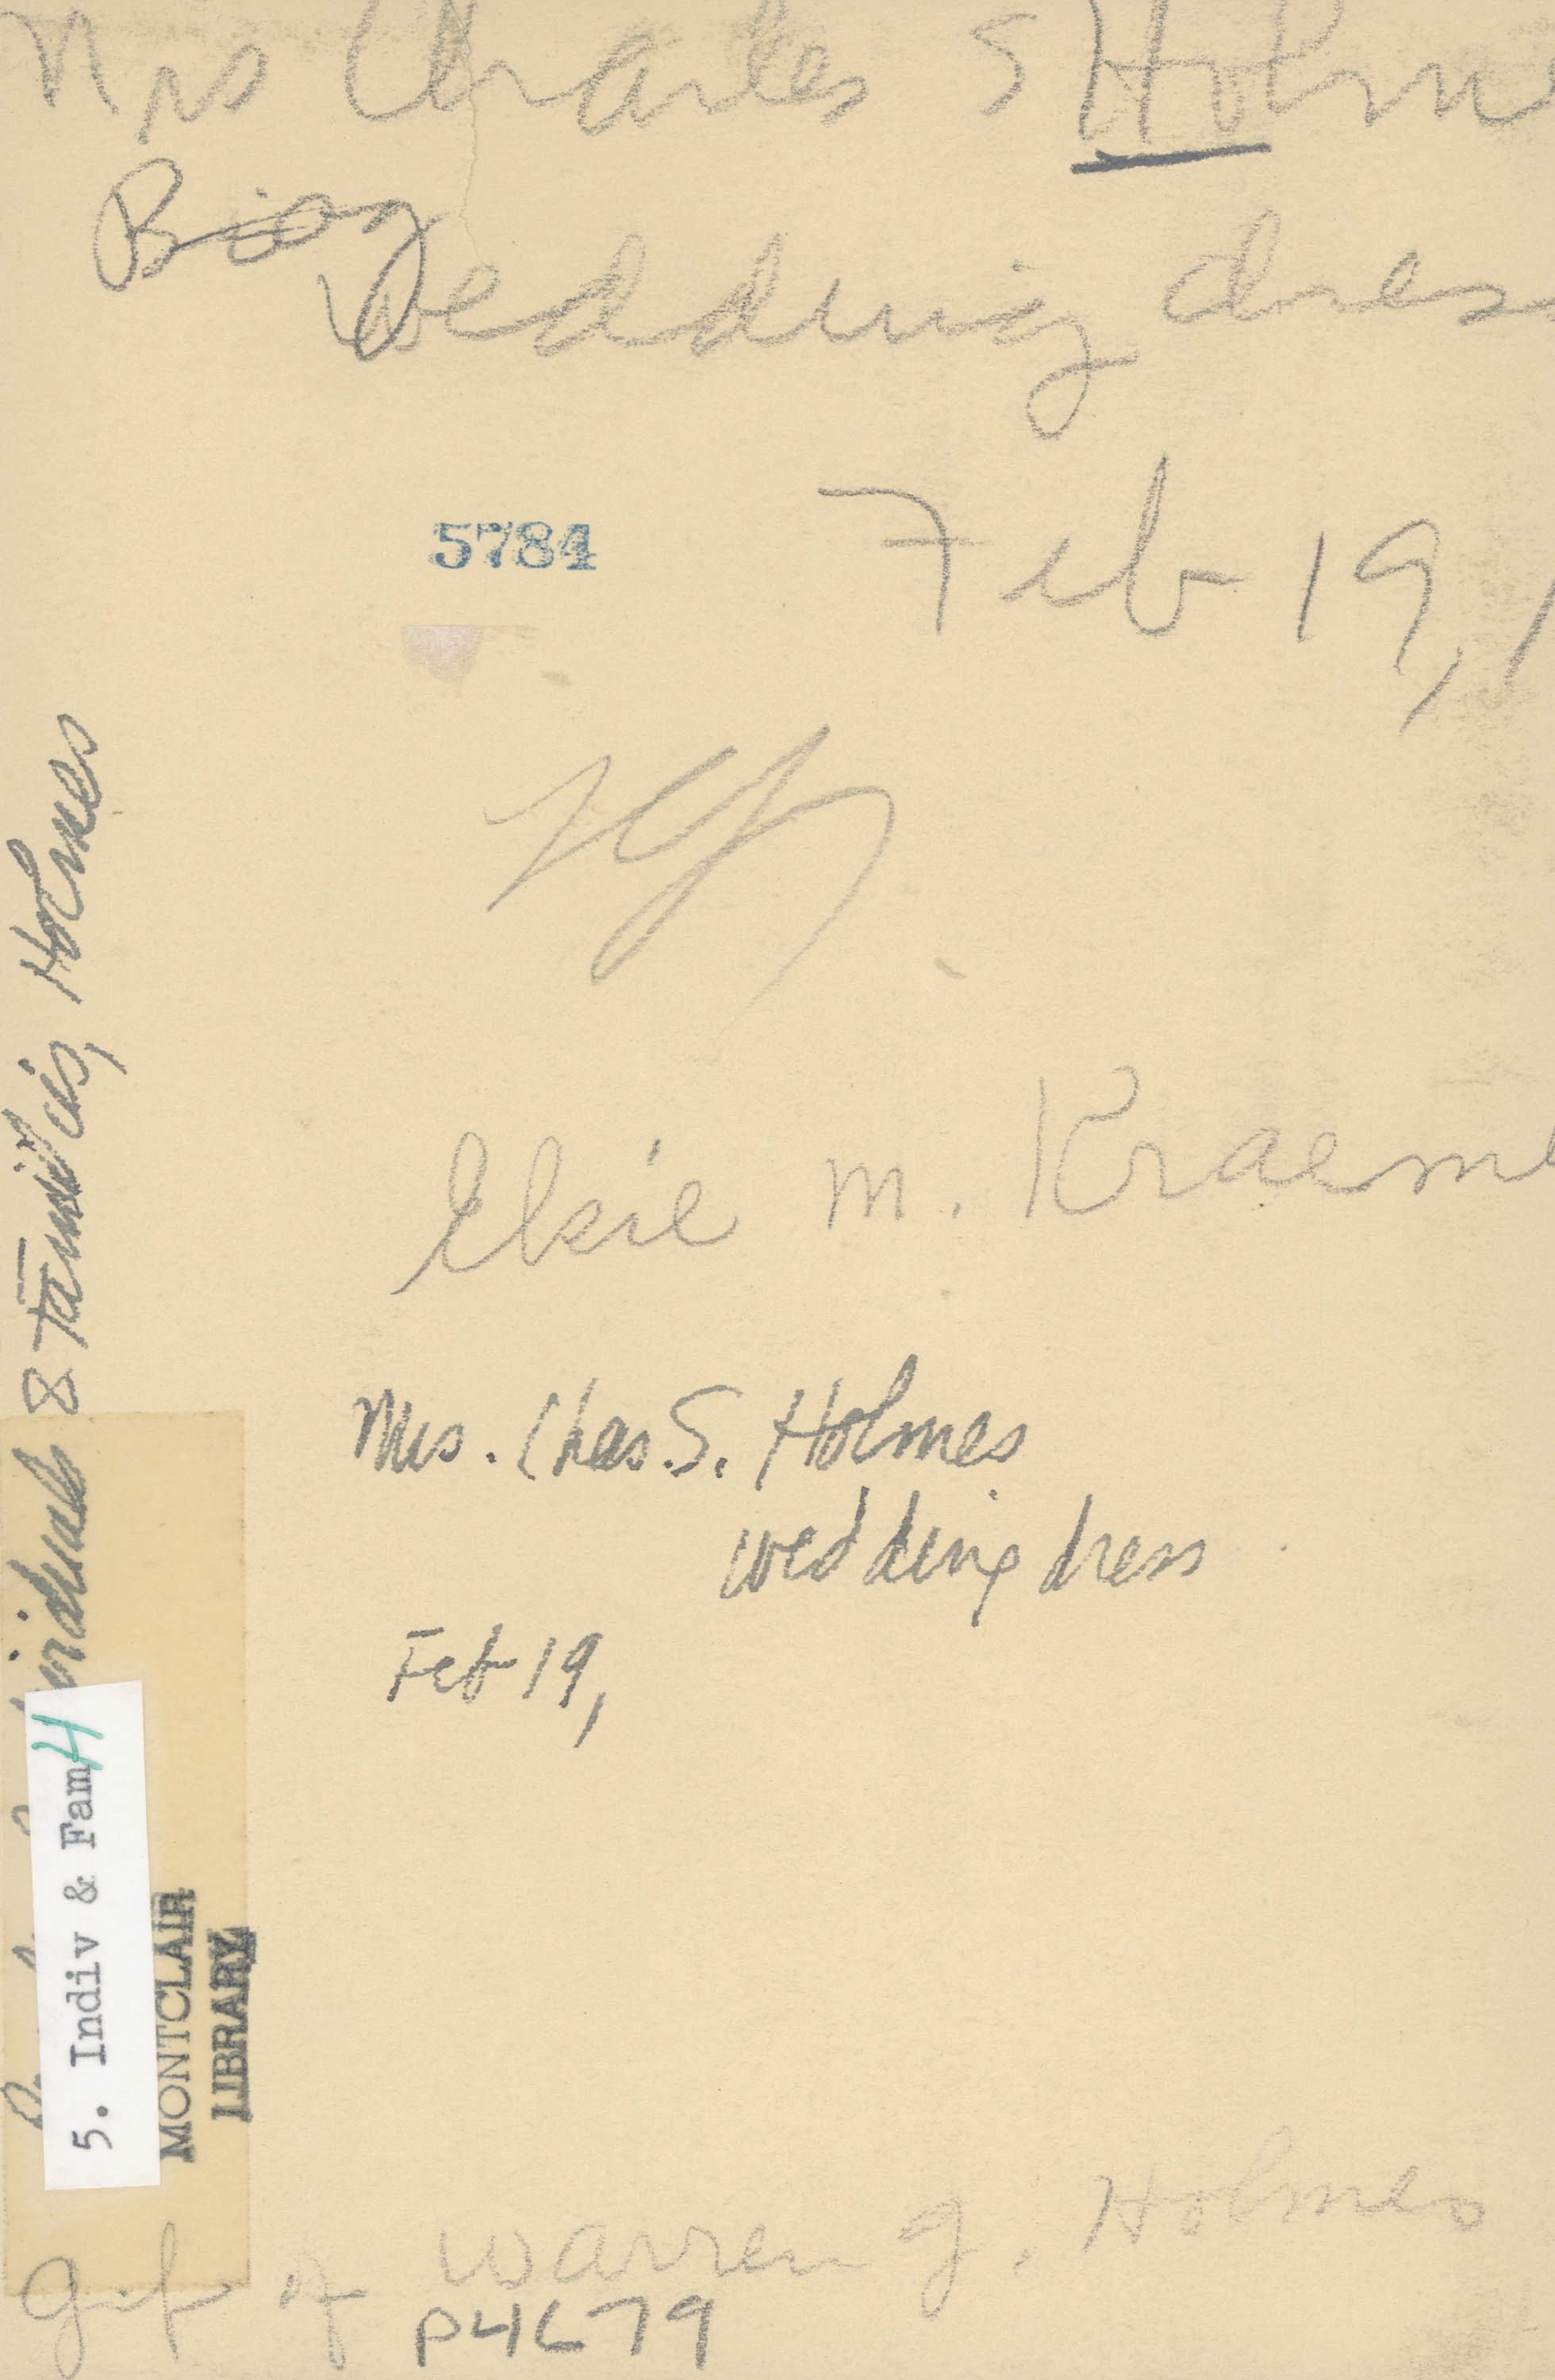 Mrs Charles S Holm
Biog
Wedding dress
5784
Feb 19, 1
Elsie M. Kraem
Mrs. Chas. S. Holmes
wedding dress
Feb 19,
Gift of Warren G. Holmes
P4679
& Families, Holmes
5. Indiv & Fam H
MONTCLAIR
LIBRARY